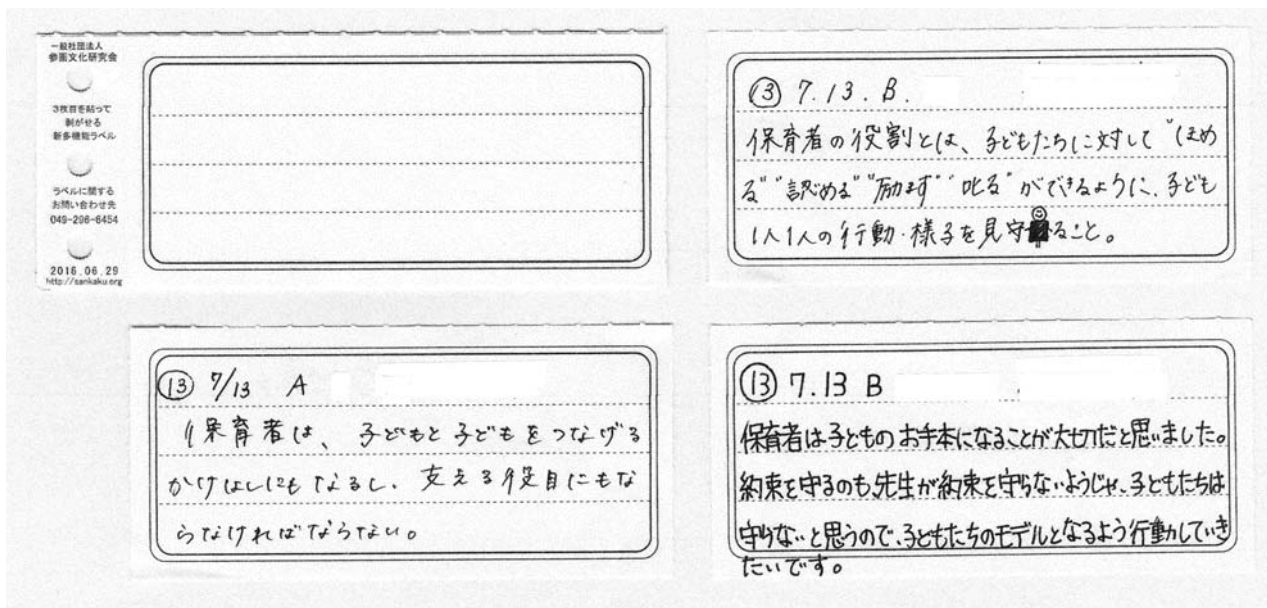 一般社団法人
参画文化研究会
3枚目を貼って
剥がせる
新多機能ラベル
ラベルに関する
お問い合わせ先
049-296-6454
2016.06.29
http://sankaku.org
⑬ 7.13. B.
保育者の役割とは、子どもたちに対して “ほめ
る” “認める” “励ます” “叱る” ができるように、子ども
1人1人の行動・様子を見守ること。
⑬ 7/13 A
保育者は、子どもと子どもをつなげる
かけはしにもなるし、支える役目にもな
らなければならない。
⑬ 7.13 B
保育者は子どものお手本になることが大切だと思いました。
約束を守るのも、先生が約束を守らないようじゃ、子どもたちは
守らないと思うので、子どもたちのモデルとなるよう行動していき
たいです。